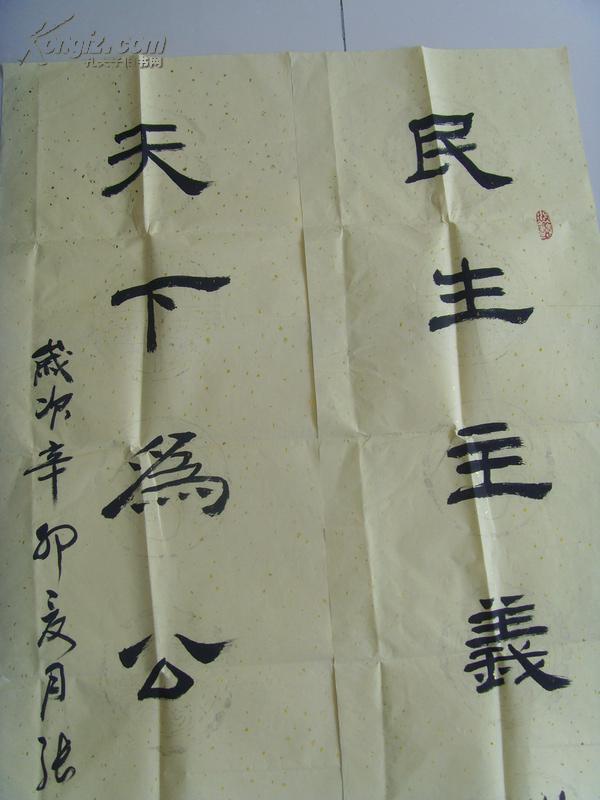 民生主義
天下為公
歲次辛卯夏月張
Kongfz.com
孔夫子旧书网